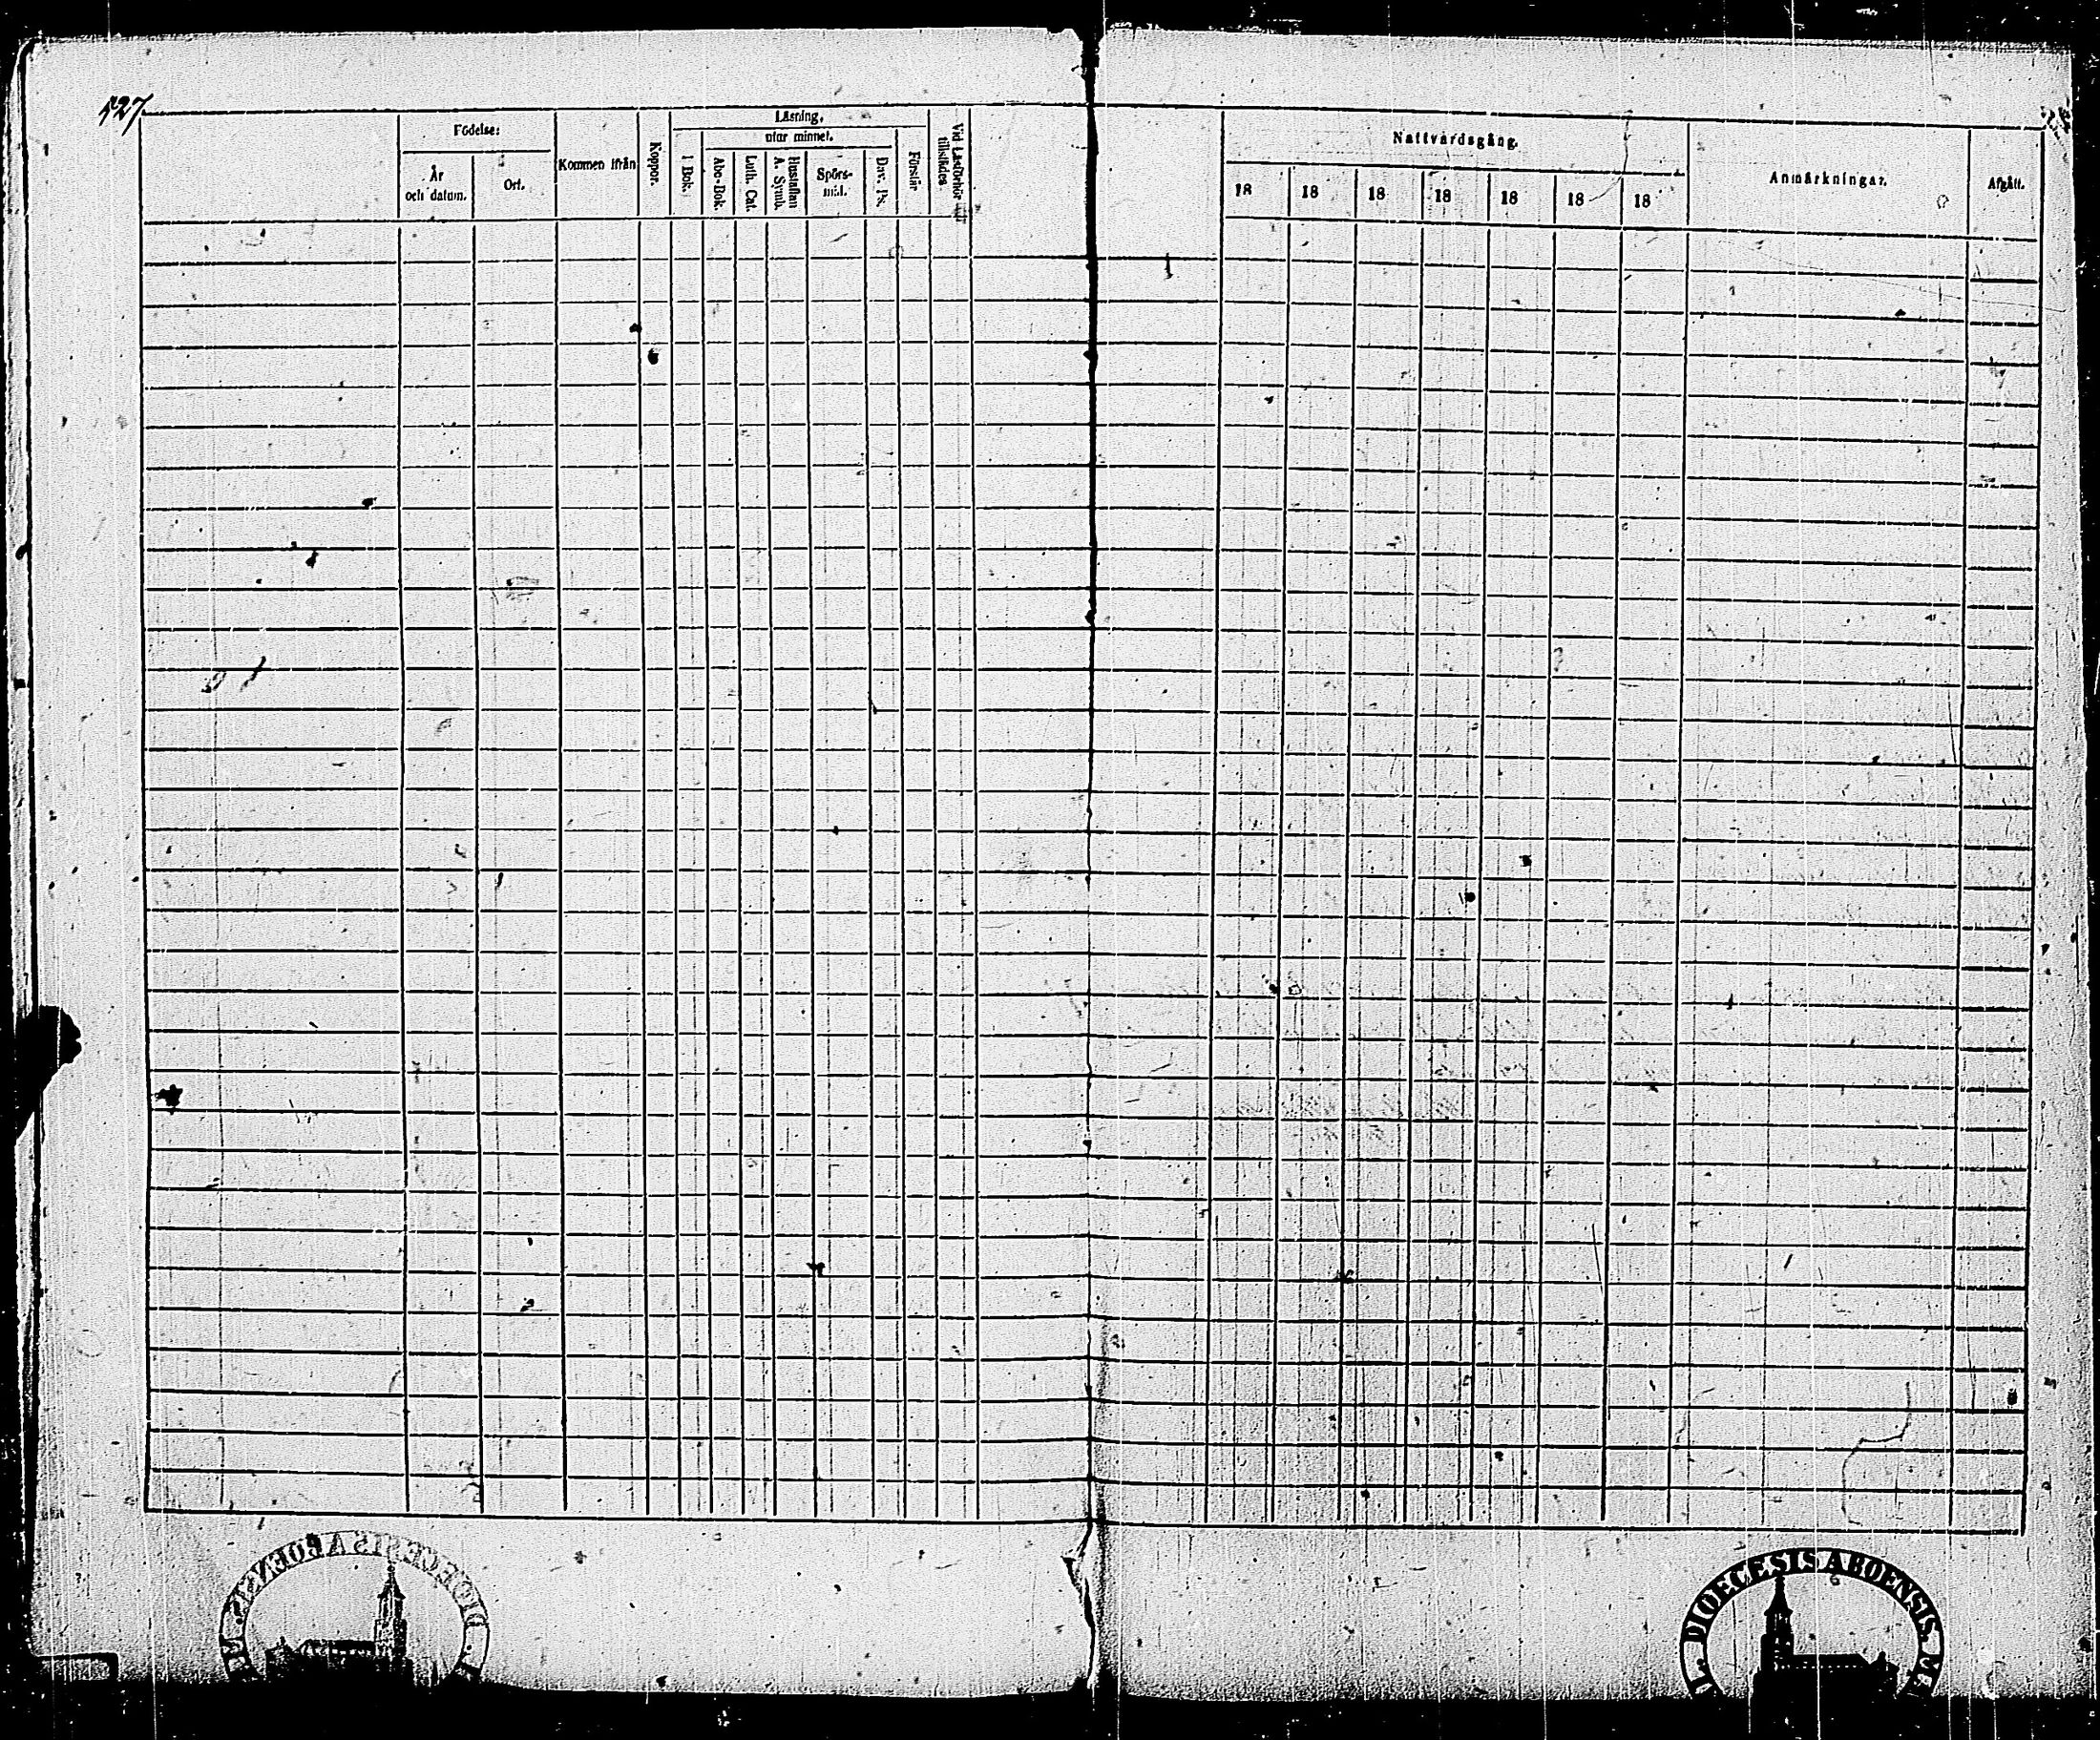 527
Födelse:
År och datum.
Ort.
Kommen ifrån
Koppor.
Läsning,
utur minnet.
I Bok.
Abc-Bok.
Luth. Cat.
Hustaflan A. Symb.
Spörs-mål.
Dav. Ps.
Förstår
Vid Läsförhör tillstädes
Nattvardsgång.
18 18 18 18 18 18 18
Anmärkningar.
Afgått.
DIOECESIS ABOENSIS
DIOECESIS ABOENSIS.